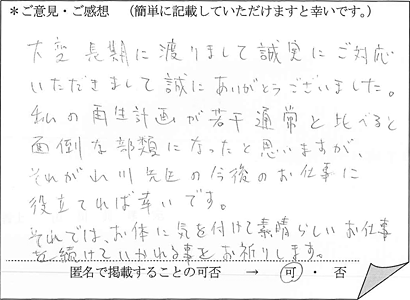 *ご意見・ご感想 (簡単に記載していただけますと幸いです。)
大変長期に渡りまして誠実にご対応
いただきまして誠にありがとうございました。
私の再生計画が若干通常と比べると
面倒な部類になったと思いますが、
それが 川先生の今後のお仕事に
役立てれば幸いです。
それでは、お体に気を付けて素晴らしいお仕事
を続けていかれる事をお祈りします。
匿名で掲載することの可否 → 可 ・ 否